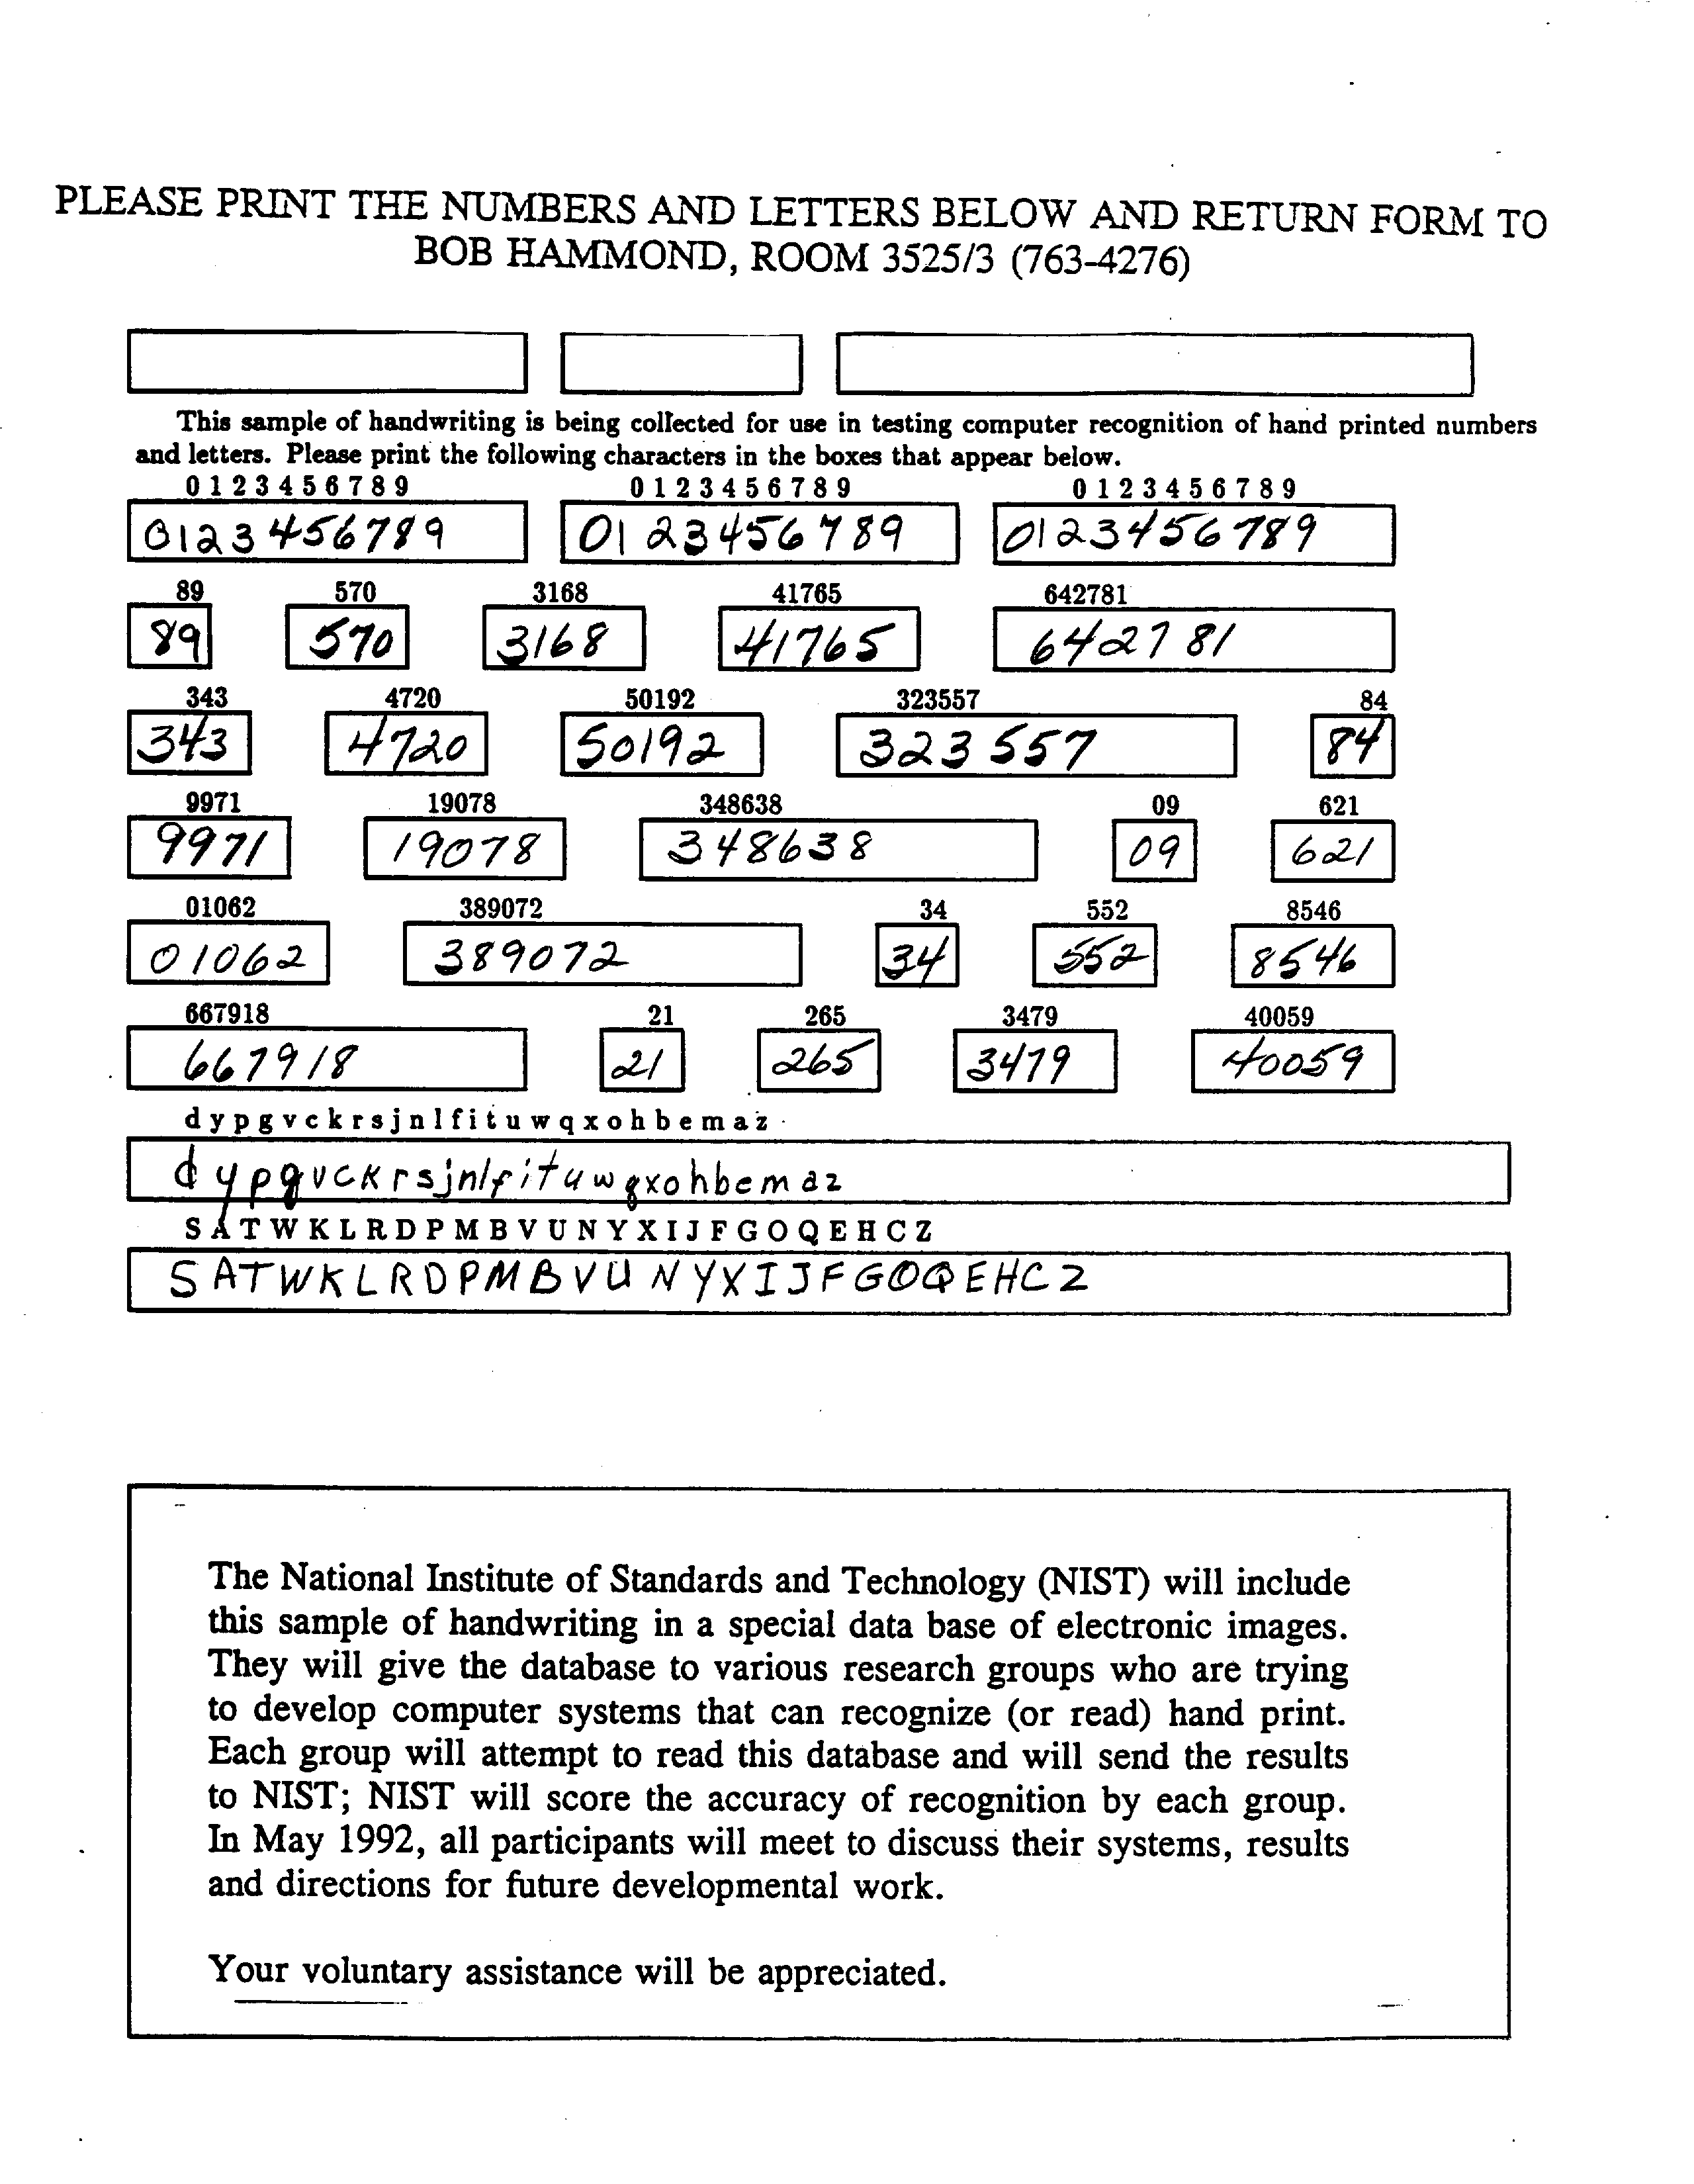 PLEASE PRINT THE NUMBERS AND LETTERS BELOW AND RETURN FORM TO
BOB HAMMOND, ROOM 3525/3 (763-4276)
This sample of handwriting is being collected for use in testing computer recognition of hand printed numbers
and letters. Please print the following characters in the boxes that appear below.
0 1 2 3 4 5 6 7 8 9 0 1 2 3 4 5 6 7 8 9 0 1 2 3 4 5 6 7 8 9
0123456789 0123456789 0123456789
89 570 3168 41765 642781
89 570 3168 41765 642781
343 4720 50192 323557 84
343 4720 50192 323557 84
9971 19078 348638 09 621
9971 19078 348638 09 621
01062 389072 34 552 8546
01062 389072 34 552 8546
667918 21 265 3479 40059
667918 21 265 3479 40059
d y p g v c k r s j n l f i t u w q x o h b e m a z
dypgvckrsjnlfituwqxohbemaz
S A T W K L R D P M B V U N Y X I J F G O Q E H C Z
SATWKLRDPMBVUNYXIJFGOQEHCZ
The National Institute of Standards and Technology (NIST) will include
this sample of handwriting in a special data base of electronic images.
They will give the database to various research groups who are trying
to develop computer systems that can recognize (or read) hand print.
Each group will attempt to read this database and will send the results
to NIST; NIST will score the accuracy of recognition by each group.
In May 1992, all participants will meet to discuss their systems, results
and directions for future developmental work.
Your voluntary assistance will be appreciated.